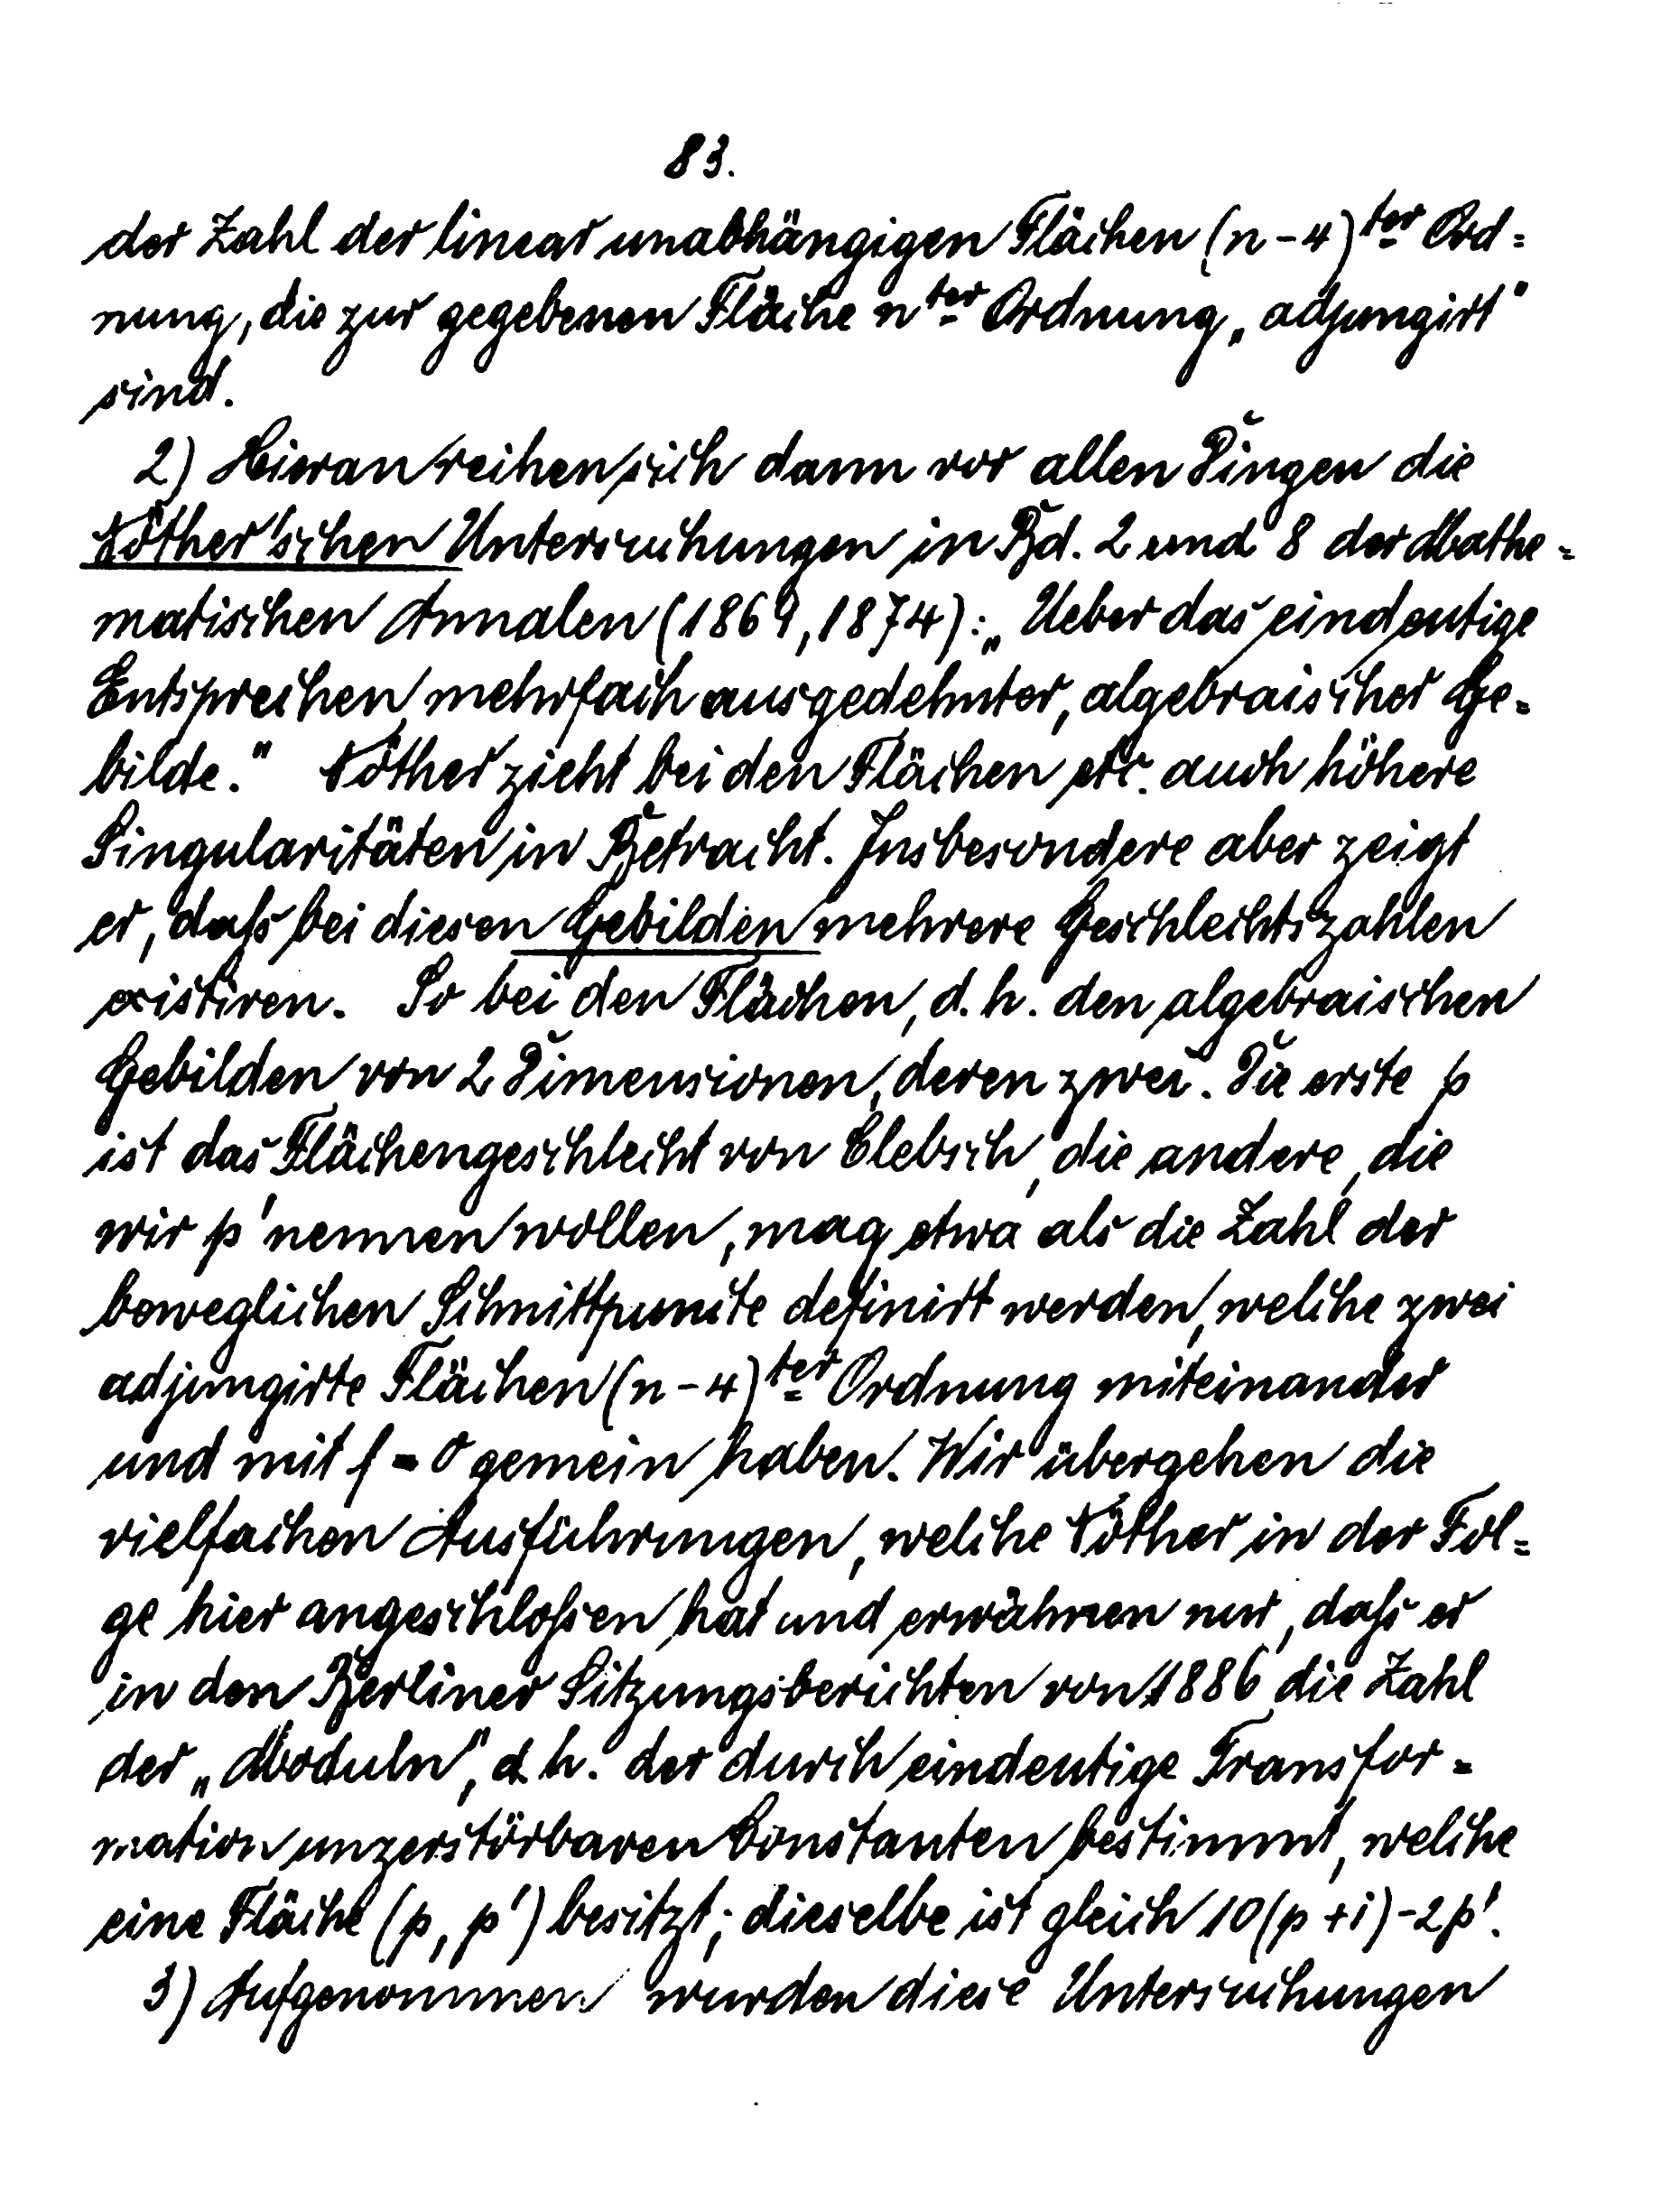 83.
der Zahl der linear unabhängigen Flächen (n-4)ter Ord=
nung, die zur gegebenen Fläche nter Ordnung „adjungirt"
sind.
2) Hieran reihen sich dann vor allen Dingen die
Nöther'schen Untersuchungen in Bd. 2 und 8 der Mathe=
matischen Annalen (1869, 1874): „Ueber das eindeutige
Entsprechen mehrfach ausgedehnter, algebraischer Ge=
bilde." Nöther zieht bei den Flächen etc. auch höhere
Singularitäten in Betracht. Insbesondere aber zeigt
er, daß bei diesen Gebilden mehrere Geschlechtszahlen
existiren. So bei den Flächen, d. h. den algebraischen
Gebilden von 2 Dimensionen, deren zwei. Die erste p
ist das Flächengeschlecht von Clebsch, die andere, die
wir p' nennen wollen, mag etwa als die Zahl der
beweglichen Schnittpuncte definirt werden, welche zwei
adjungirte Flächen (n-4)ter Ordnung miteinander
und mit f = 0 gemein haben. Wir übergehen die
vielfachen Ausführungen, welche Nöther in der Fol=
ge hier angeschloßen hat und erwähnen nur, daß er
in den Berliner Sitzungsberichten von 1886 die Zahl
der „Moduln", d. h. der durch eindeutige Transfor=
mation unzerstörbaren Constanten bestimmt, welche
eine Fläche (p, p') besitzt; dieselbe ist gleich 10(p+1)-2p'.
3) Aufgenommen wurden diese Untersuchungen